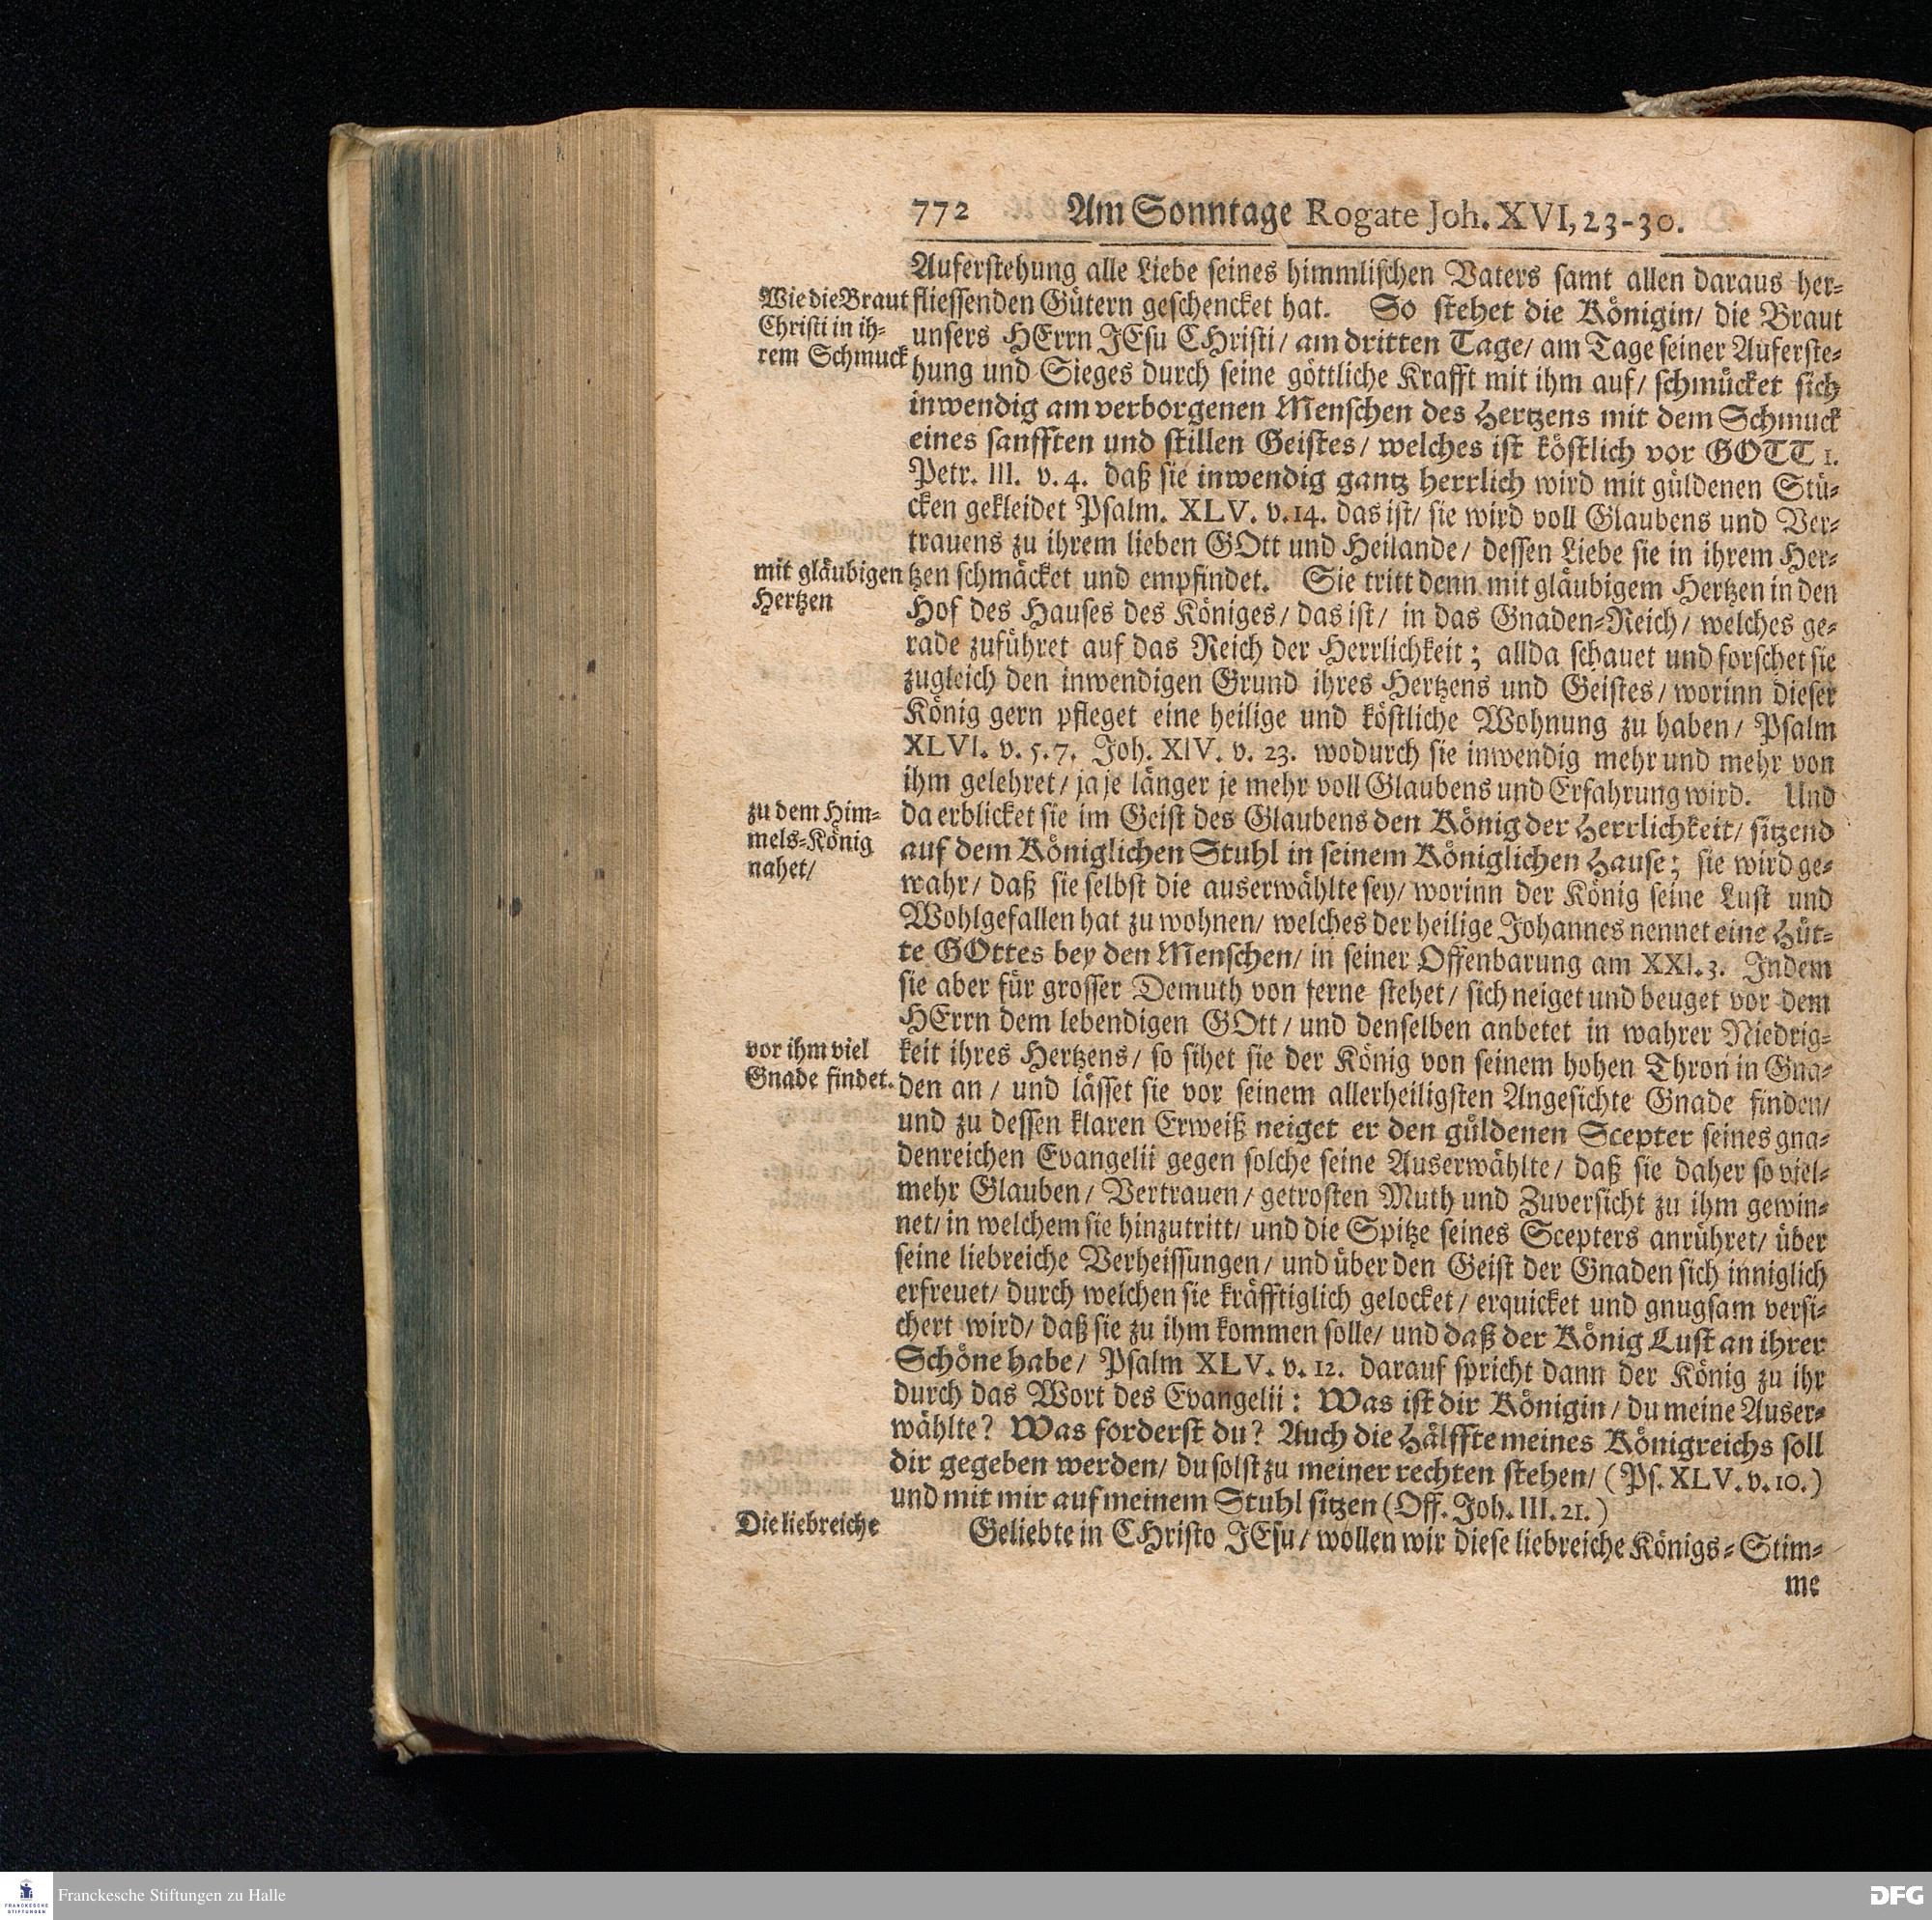 772 Am Sonntage Rogate Joh. XVI, 23-30.
Auferstehung alle Liebe seines himmlischen Vaters samt allen daraus her-
fliessenden Gütern geschencket hat. So stehet die Königin/ die Braut
unsers HErrn JEsu CHristi/ am dritten Tage/ am Tage seiner Auferste-
hung und Sieges durch seine göttliche Krafft mit ihm auf/ schmücket sich
inwendig am verborgenen Menschen des Hertzens mit dem Schmuck
eines sanfften und stillen Geistes/ welches ist köstlich vor GOTT 1.
Petr. III. v. 4. daß sie inwendig gantz herrlich wird mit güldenen Stü-
cken gekleidet Psalm. XLV. v. 14. das ist/ sie wird voll Glaubens und Ver-
trauens zu ihrem lieben GOtt und Heilande/ dessen Liebe sie in ihrem Her-
tzen schmäcket und empfindet. Sie tritt denn mit gläubigem Hertzen in den
Hof des Hauses des Königes/ das ist/ in das Gnaden-Reich/ welches ge-
rade zuführet auf das Reich der Herrlichkeit; allda schauet und forschet sie
zugleich den inwendigen Grund ihres Hertzens und Geistes/ worinn dieser
König gern pfleget eine heilige und köstliche Wohnung zu haben/ Psalm
XLVI. v. 5. 7. Joh. XIV. v. 23. wodurch sie inwendig mehr und mehr von
ihm gelehret/ ja je länger je mehr voll Glaubens und Erfahrung wird. Und
da erblicket sie im Geist des Glaubens den König der Herrlichkeit/ sitzend
auf dem Königlichen Stuhl in seinem Königlichen Hause; sie wird ge-
wahr/ daß sie selbst die auserwählte sey/ worinn der König seine Lust und
Wohlgefallen hat zu wohnen/ welches der heilige Johannes nennet eine Hüt-
te GOttes bey den Menschen/ in seiner Offenbarung am XXI. 3. Indem
sie aber für grosser Demuth von ferne stehet/ sich neiget und beuget vor dem
HErrn dem lebendigen GOtt/ und denselben anbetet in wahrer Niedrig-
keit ihres Hertzens/ so sihet sie der König von seinem hohen Thron in Gna-
den an/ und lässet sie vor seinem allerheiligsten Angesichte Gnade finden/
und zu dessen klaren Erweiß neiget er den güldenen Scepter seines gna-
denreichen Evangelii gegen solche seine Auserwählte/ daß sie daher so viel-
mehr Glauben/ Vertrauen/ getrosten Muth und Zuversicht zu ihm gewin-
net/ in welchem sie hinzutritt/ und die Spitze seines Scepters anrühret/ über
seine liebreiche Verheissungen/ und über den Geist der Gnaden sich inniglich
erfreuet/ durch welchen sie kräfftiglich gelocket/ erquicket und gnugsam versi-
chert wird/ daß sie zu ihm kommen solle/ und daß der König Lust an ihrer
Schöne habe/ Psalm XLV. v. 12. darauf spricht dann der König zu ihr
durch das Wort des Evangelii: Was ist dir Königin/ du meine Auser-
wählte? Was forderst du? Auch die Hälffte meines Königreichs soll
dir gegeben werden/ du solst zu meiner rechten stehen/ (Ps. XLV. v. 10.)
und mit mir auf meinem Stuhl sitzen (Off. Joh. III. 21.)
Geliebte in CHristo JEsu/ wollen wir diese liebreiche Königs-Stim-
me
Wie die Braut
Christi in ih-
rem Schmuck
mit gläubigen
Hertzen
zu dem Him-
mels-König
nahet/
vor ihm viel
Gnade findet.
Die liebreiche
FRANCKESCHE
STIFTUNGEN
Franckesche Stiftungen zu Halle
DFG